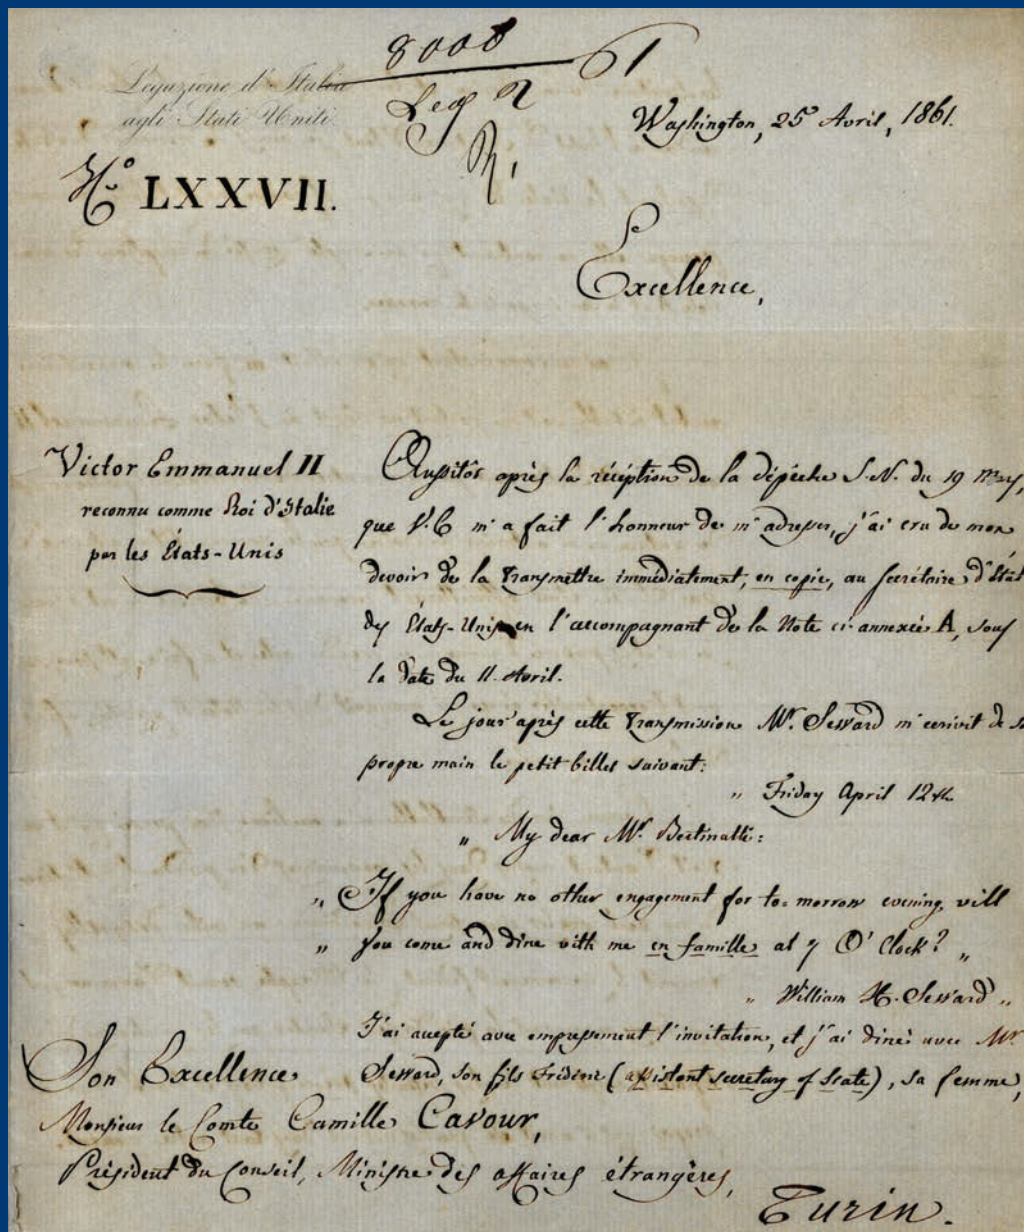 Legazione d'Italia
agli Stati Uniti
8008
61
Leg
Washington, 25 Avril, 1861.
N.° LXXVII.
Excellence,
Victor Emmanuel II
reconnu comme Roi d'Italie
par les États-Unis
Aussitôt après la réception de la dépêche S.N. du 19 mars,
que V.E m'a fait l'honneur de m'adresser, j'ai cru de mon
devoir de la transmettre immédiatement, en copie, au secrétaire d'État
des États-Unis en l'accompagnant de la Note ci-annexée A, sous
la date du 11 Avril.
Le jour après cette transmission Mr. Seward m'écrivit de sa
propre main le petit billet suivant:
" Friday April 12th
" My dear Mr. Bertinatti:
" If you have no other engagement for to-morrow evening, will
" you come and dine with me en famille at 7 O'Clock? "
" William H. Seward "
J'ai accepté avec empressement l'invitation, et j'ai diné avec Mr
Seward, son fils Fréderic (assistant secretary of State), sa femme,
Son Excellence
Monsieur le Comte Camille Cavour,
Président du Conseil, Ministre des affaires étrangères,
Turin.